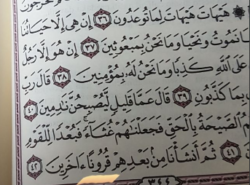 هَيْهَاتَ هَيْهَاتَ لِمَا تُوعَدُونَ ٣٦ إِنْ هِيَ إِلَّا حَيَاتُنَا
نَمُوتُ وَنَحْيَا وَمَا نَحْنُ بِمَبْعُوثِينَ ٣٧ إِنْ هُوَ إِلَّا رَجُلٌ
عَلَى اللَّهِ كَذِبًا وَمَا نَحْنُ لَهُ بِمُؤْمِنِينَ ٣٨ قَالَ رَبِّ
بِمَا كَذَّبُونِ ٣٩ قَالَ عَمَّا قَلِيلٍ لَيُصْبِحُنَّ نَادِمِينَ ٤٠
الصَّيْحَةُ بِالْحَقِّ فَجَعَلْنَاهُمْ غُثَاءً فَبُعْدًا لِلْقَوْمِ
٤١ ثُمَّ أَنْشَأْنَا مِنْ بَعْدِهِمْ قُرُونًا آخَرِينَ ٤٢
٣٤٤